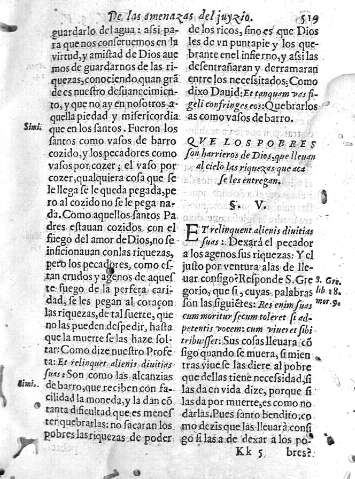 De las amenazas del juyzio. 519
guardarlo del agua: assi pa-
ra que nos conseruemos en la
virtud, y amistad de Dios aue
mos de guardarnos de las ri-
quezas, conociendo quan grã
de es nuestro desuanecimien-
to, y que no ay en nosotros a-
quella piedad y misericordia
Simi. que en los santos. Fueron los
santos como vasos de barro
cozido, y los pecadores como
vasos por cozer; el vaso por
cozer, qualquiera cosa que se
le llega se le queda pegada, pe-
ro al cozido no se le pega na-
da. Como aquellos santos Pa
dres estauan cozidos con el
fuego del amor de Dios, no se
inficionauan con las riquezas,
pero los pecadores, como es-
tan crudos y agenos de aques-
te fuego de la perfeta cari-
dad, se les pegan al coraçon
las riquezas, de tal suerte, que
no las pueden despedir, hasta
que la muerte se las haze sol-
tar: Como dize nuestro Profe
ta: Et relinquet alienis diuitias
suas: Son como las alcanzias
Simi. de barro, que reciben con fa-
cilidad la moneda, y la dan cõ
tanta dificultad que es menes
ter quebrarlas: no sacaran los
pobres las riquezas de poder
de los ricos, sino es que Dios
les de vn puntapie y los que-
brante en el infierno, y assi las
desentrañaran y derramaran
entre los necessitados: Como
dixo Dauid: Et tanquam vas fi-
geli confringes eos: Quebrarlos
as como vasos de barro.
QVE LOS POBRES
son harrieros de Dios, que lleuan
al cielo las riquezas que aca
se les entregan.
§. V.
ET relinquent alienis diuitias
suas: Dexará el pecador
a los agenos sus riquezas: Y el
justo por ventura alas de lle-
uar consigo? Responde S. Gre S. Gre.
gorio, que si, cuyas palabras lib 18.
son las siguiẽtes: Res enim suas mor. 9.
cum moritur secum toleret si ad-
petentis vocem: cum viuet et sibi
tribuisset: Sus cosas lleuara cõ
sigo quando se muera, si mien
tras viue se las diere al pobre
que dellas tiene necessidad, si
las da con vida dize, porque si
las da por muerte, es como no
darlas. Pues santo bendito, co
mo dezis que las lleuará consi
go si las a de dexar a los po-
Kk 5 bres?